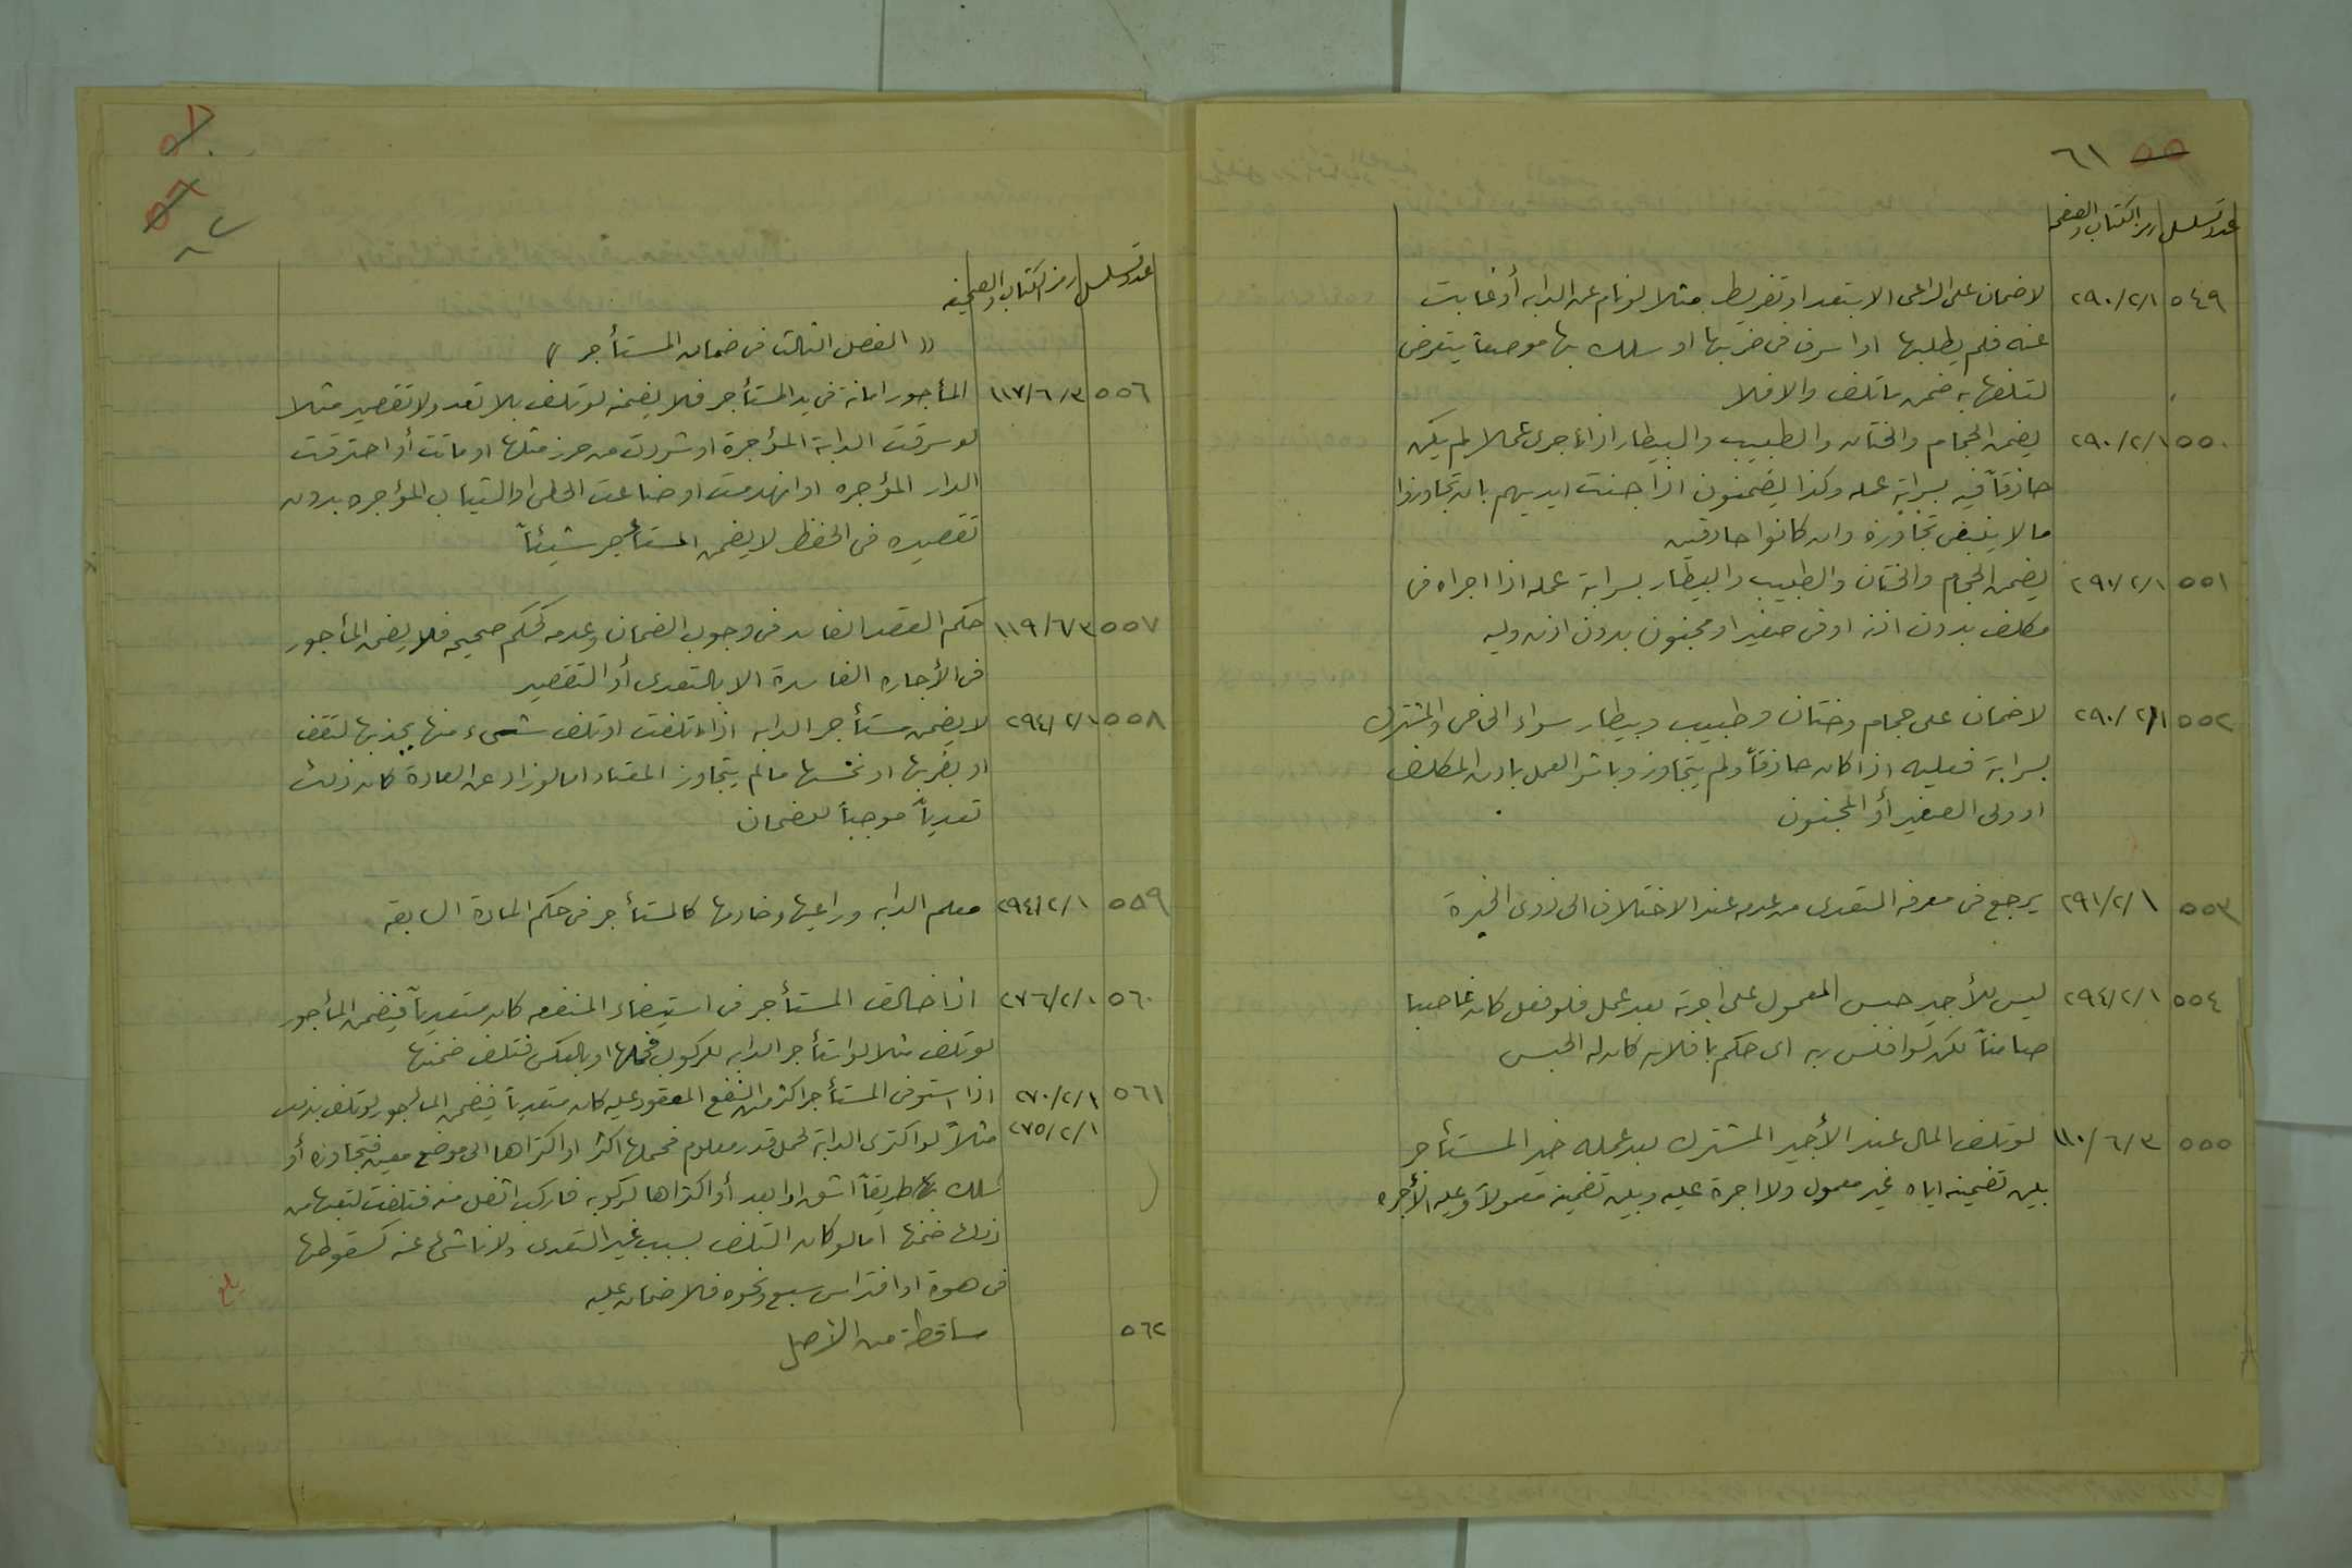 ٥٥ ٦١
عدد تسلسل رمز الكتاب والصفحه
٥٤٩ ٢٩٠/٢/١ لا ضمان على الراعى الا بتعد او تفريط مثلا لو نام عن الدابه أو غابت
عنه فلم يطلبها او اسرف فى ضربها او سلك بها موضعاً يتعرض
لتلفها به ضمن ما تلف والا فلا
٥٥٠ ٢٩٠/٢/١ يضمن الحجام والختان والطبيب والبيطار اذا اجرى عملا لم يكن
حاذقاً فيه بسراية عمله وكذا يضمنون اذا جنت ايديهم بان تجاوزوا
ما لا ينبغى تجاوزه وان كانوا حاذقين
٥٥١ ٢٩٠/٢/١ يضمن الحجام والختان والطبيب والبيطار بسراية عمله اذا اجراه فى
مكلف بدون اذنه او فى صغير او مجنون بدون اذن وليه
٥٥٢ ٢٩٠/٢/١ لا ضمان على حجام وختان وطبيب وبيطار سواء الخاص والمشترك
بسراية فعليه اذا كان حاذقاً ولم يتجاوز وباشر العمل باذن المكلف
او ولى الصغير أو المجنون
٥٥٣ ٢٩١/٢/١ يرجع فى معرفه التعدى من عدمه عند الاختلاف الى ذوى الخبرة
٥٥٤ ٢٩٤/٢/١ ليس للأجير حبس المعمول على اجرته بعد عمل فلو فعل كان غاصبا
ضامناً لكن لو افلس ربه اى حكم بافلاسه كان له الحبس
٥٥٥ ١١٠/٦/٣ لو تلف المال عند الأجير المشترك بعد عمله خير المستأجر
بين تضمينه اياه غير معمول ولا اجرة عليه وبين تضمينه معمولاً وعليه الأجره
٦٢
عدد تسلسل رمز الكتاب والصحيفه
(( الفصل الثالث فى ضمان المستأجر ))
٥٥٦ ١١٧/٦/٣ المأجور امانة فى يد المستأجر فلا يضمنه لو تلف بلا تعد ولا تقصير مثلا
لو سرقت الدابة المؤجرة او شردت من حرز مثلها او ماتت أو احترقت
الدار المؤجره او انهدمت او ضاعت الحلى او الثياب المؤجره بدون
تقصيره فى الحفظ لا يضمن المستأجر شيئاً
٥٥٧ ١١٩/٦/٣ حكم العقد الفاسد فى وجوب الضمان وعدمه كحكم صحيحه فلا يضمن المأجور
فى الأجاره الفاسدة الا بالتعدى أو التقصير
٥٥٨ ٢٩٤/٢/١ لا يضمن مستأجر الدابه اذا تلفت او تلف شىء منها بجذبها لتقف
او بضربها او نخسها ما لم يتجاوز المعتاد اما لو زاد عن العادة كان ذلك
تعدياً موجباً للضمان
٥٥٩ ٢٩٤/٢/١ معلم الدابه وراعيها وخادمها كالمستأجر فى حكم المادة السابقه
٥٦٠ ٢٧٦/٢/١ اذا خالف المستأجر فى استيفاء المنفعه كان متعدياً فيضمن المأجور
لو تلف مثلا لو استأجر الدابه للركوب فحملها او بالعكس فتلف ضمنها
٥٦١ ٢٧٠/٢/١ اذا استوفى المستأجر اكثر من النفع المعقود عليه كان متعدياً فيضمن المأجور لو تلف بذلك
٢٧٥/٢/١ مثلاً لو اكترى الدابة لحمل قدر معلوم فحملها اكثر او اكتراها الى موضع معين فتجاوزه أو
سلك بها طريقاً اشق او ابعد أو اكتراها لركوبه فاركب اثقل منه فتلفت لتعبها من
ذلك ضمنها اما لو كان التلف بسبب غير التعدى ولا ناشئ عنه كسقوطها
فى هوة او افتراس سبع ونحوه فلا ضمان عليه
بلغ
٥٦٢ ساقطة من الأصل